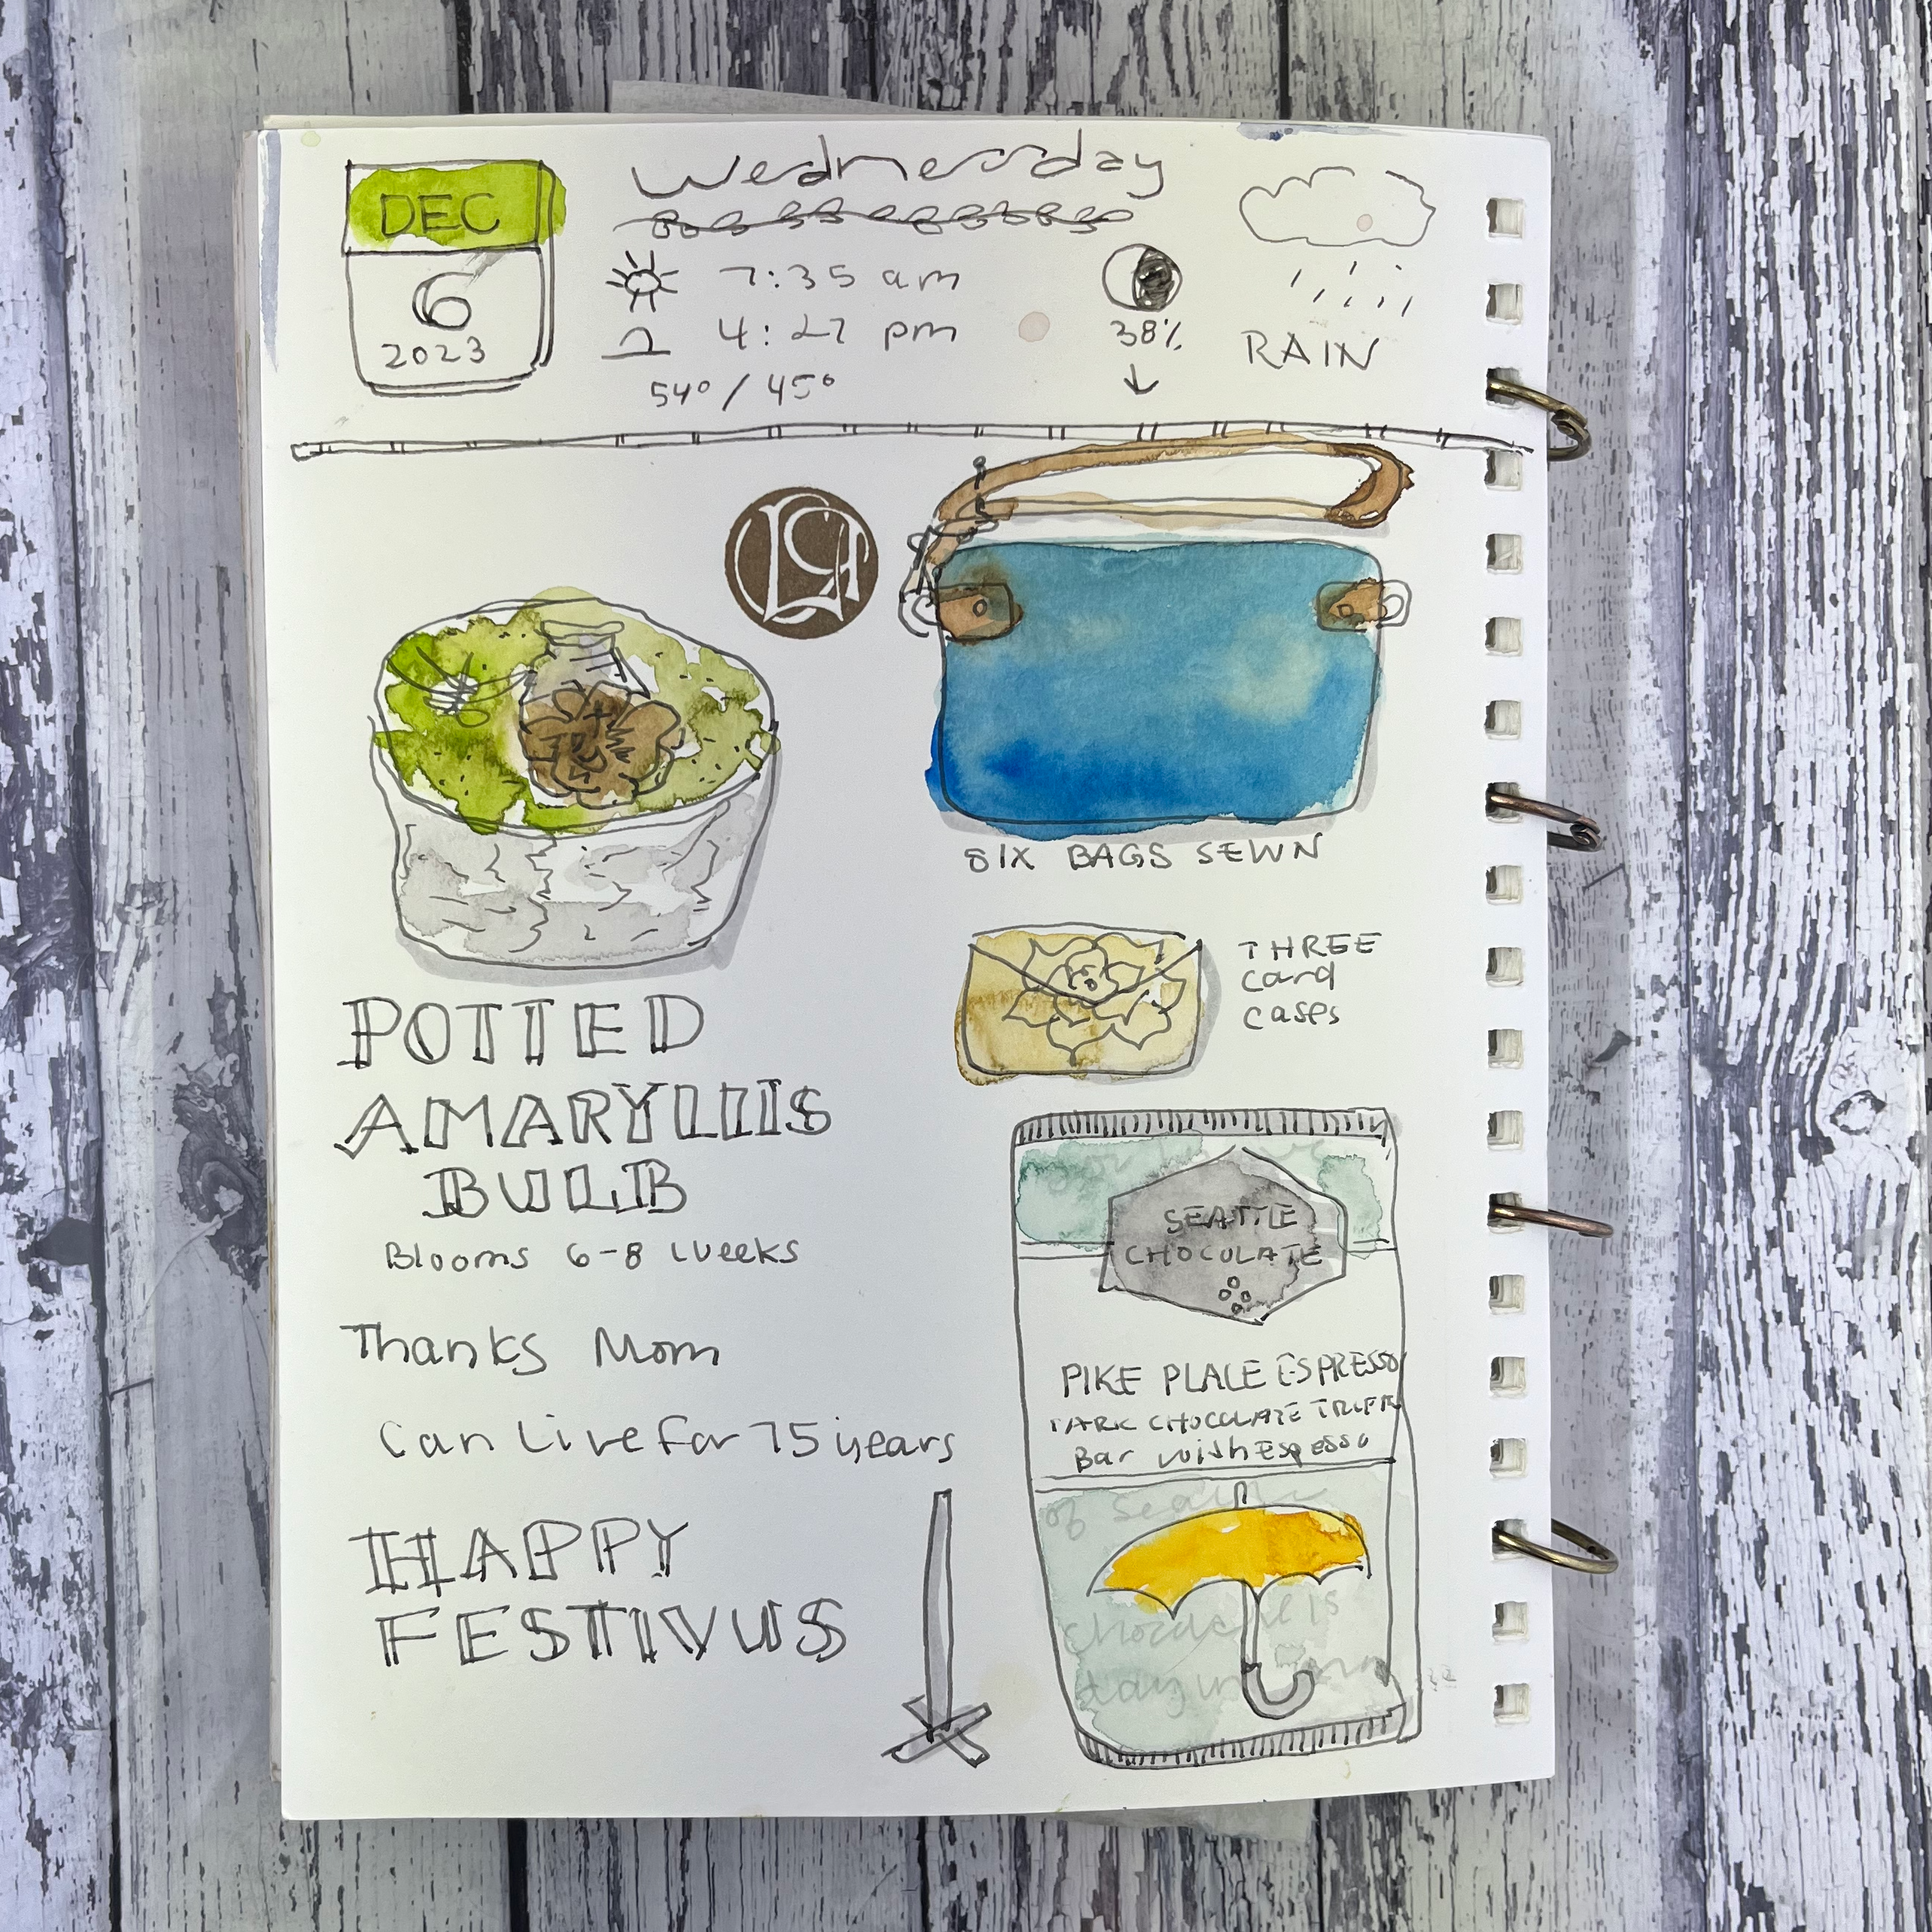 DEC
6
2023
Wednesday
7:35 am
4:27 pm
54° / 45°
38%
RAIN
SIX BAGS SEWN
THREE
card
cases
POTTED
AMARYLLIS
BULB
Blooms 6-8 weeks
Thanks Mom
Can Live for 75 years
HAPPY
FESTIVUS
SEATTLE
CHOCOLATE
PIKE PLACE ESPRESSO
DARK CHOCOLATE
Bar with Espresso
of
chocolate is